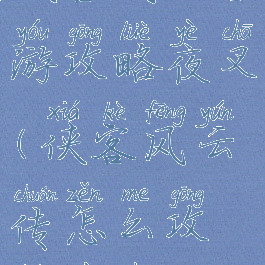 yóu gōng lüè yè chā
游攻略夜叉
xiá kè fēng yún
(侠客风云
chuán zěn me gōng
传怎么攻